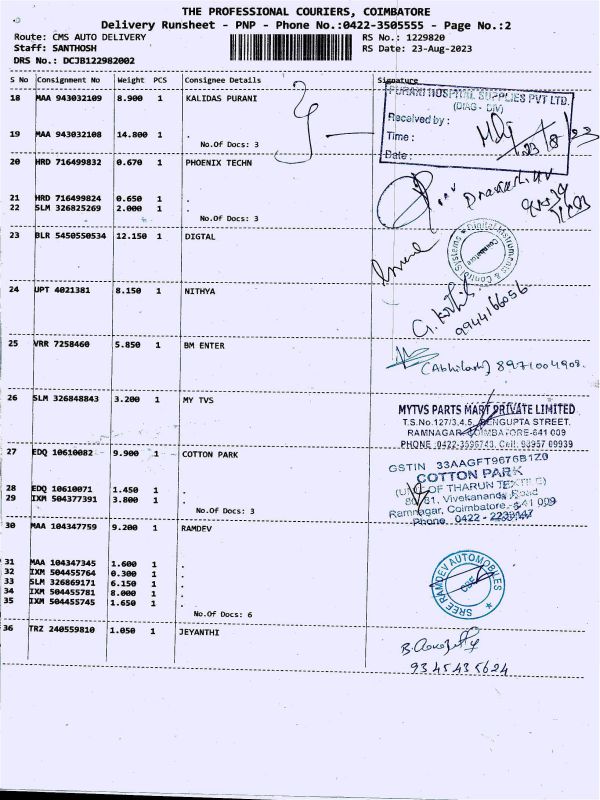 THE PROFESSIONAL COURIERS, COIMBATORE
Delivery Runsheet - PNP - Phone No.:0422-3505555 - Page No.:2
Route: CMS AUTO DELIVERY RS No.: 1229820
Staff: SANTHOSH RS Date: 23-Aug-2023
DRS No.: DCJB122982002
S No Consignment No Weight PCS Consignee Details Signature
18 MAA 943032109 8.900 1 KALIDAS PURANI
PURANI HOSPITAL SUPPLIES PVT LTD.
(DIAG - DIV)
Received by :
Time :
Date :
19 MAA 943032108 14.800 1 .
No.Of Docs: 3
20 HRD 716499832 0.670 1 PHOENIX TECHN
21 HRD 716499824 0.650 1 .
22 SLM 326825269 2.000 1 .
No.Of Docs: 3
23 BLR 5450550534 12.150 1 DIGTAL
Digital Instruments & Control Systems
Coimbatore
24 UPT 4021381 8.150 1 NITHYA
9944166056
25 VRR 7258460 5.850 1 BM ENTER
(Abhilash) 8971004908.
26 SLM 326848843 3.200 1 MY TVS
MYTVS PARTS MART PRIVATE LIMITED
T.S.No.127/3,4,5, SENGUPTA STREET.
RAMNAGAR, COIMBATORE-641 009
PHONE :0422-3596743, Cell: 93957 09939
27 EDQ 10610082 9.900 1 COTTON PARK
GSTIN 33AAGFT9676B1Z0
COTTON PARK
(UNIT OF THARUN TEXTILE)
Vivekananda Road
Ramnagar, Coimbatore-641 009
Phone. 0422 - 2239147
28 EDQ 10610071 1.450 1 .
29 IXM 504377391 3.800 1 .
No.Of Docs: 3
30 MAA 104347759 9.200 1 RAMDEV
SREE RAMDEV AUTOMOBILES
CBE
31 MAA 104347345 1.600 1 .
32 IXM 504455764 0.300 1 .
33 SLM 326869171 6.150 1 .
34 IXM 504455781 8.000 1 .
35 IXM 504455745 1.650 1 .
No.Of Docs: 6
36 TRZ 240559810 1.050 1 JEYANTHI
9345435624